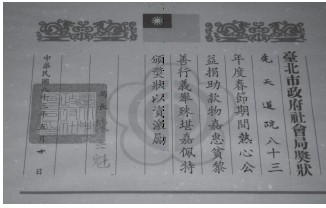 臺北市政府社會局獎狀
先天道院八十三
年度春節期間熱心公
益捐助款物嘉惠貧黎
善行義舉殊堪嘉佩特
頒獎狀以資激勵
局長
中華民國八十三年五月 日